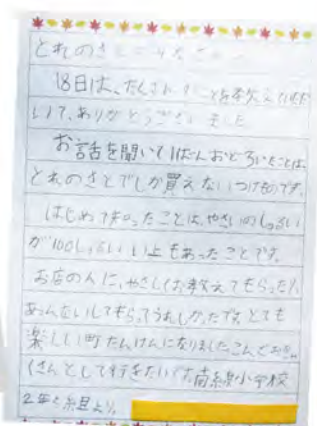 とれのさと
18日は、たくさんのことをおしえていただ
いて、ありがとうございました
お話を聞いて1ばんおどろいたことは、
とれのさとでしか買えないつけものです。
はじめて知ったことは、やさいのしゅるい
が100しゅるい以上もあったことです。
お店の人に、やさしくお教えてもらったり、
あんないしてもらってうれしかったです。とても
楽しい町たんけんになりました。こんどおきゃ
くさんとして行きたいです。南線小学校
2年2組より